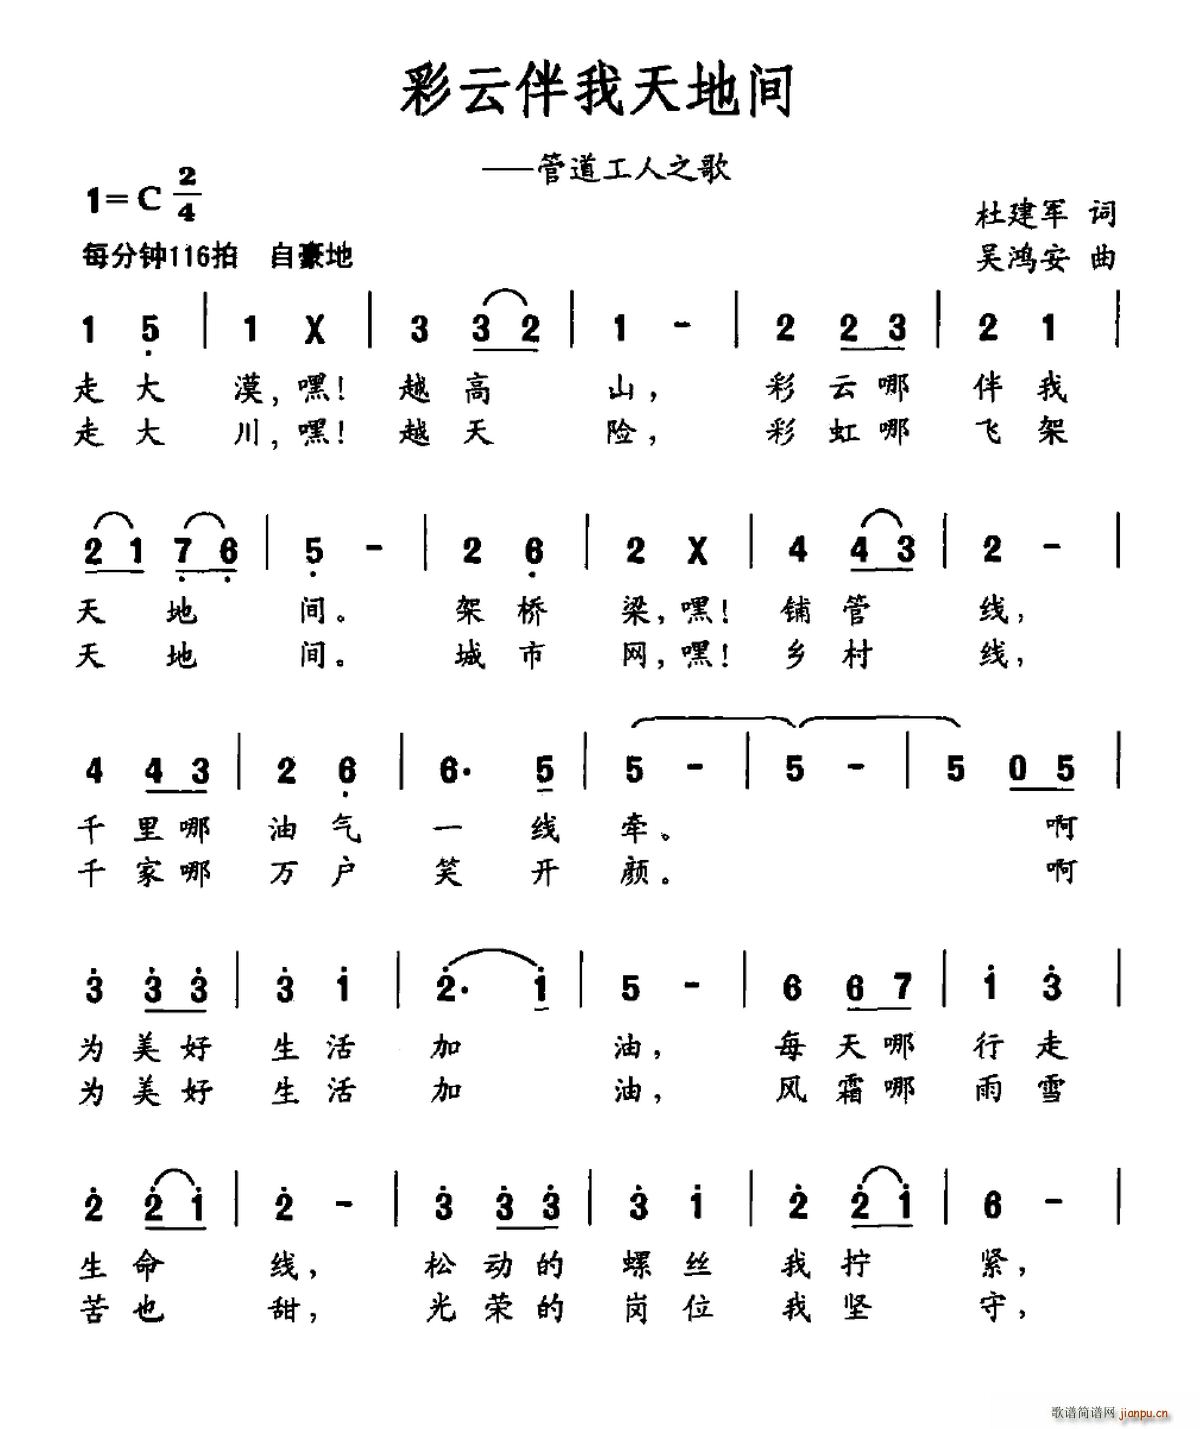 彩云伴我天地间
——管道工人之歌
1=C 2/4
杜建军 词
每分钟116拍 自豪地
吴鸿安 曲
1 5 | 1 X | 3 3 2 | 1 - | 2 2 3 | 2 1 |
走大漠,嘿!越高山,彩云哪伴我
走大川,嘿!越天险,彩虹哪飞架
2 1 7 6 | 5 - | 2 6 | 2 X | 4 4 3 | 2 - |
天地间。架桥梁,嘿!铺管线,
天地间。城市网,嘿!乡村线,
4 4 3 | 2 6 | 6· 5 | 5 - | 5 - | 5 0 5 |
千里哪油气一线牵。啊
千家哪万户笑开颜。啊
3 3 3 | 3 1 | 2· 1 | 5 - | 6 6 7 | 1 3 |
为美好生活加油,每天哪行走
为美好生活加油,风霜哪雨雪
2 2 1 | 2 - | 3 3 3 | 3 1 | 2 2 1 | 6 - |
生命线,松动的螺丝我拧紧,
苦也甜,光荣的岗位我坚守,
歌谱简谱网 jianpu.cn